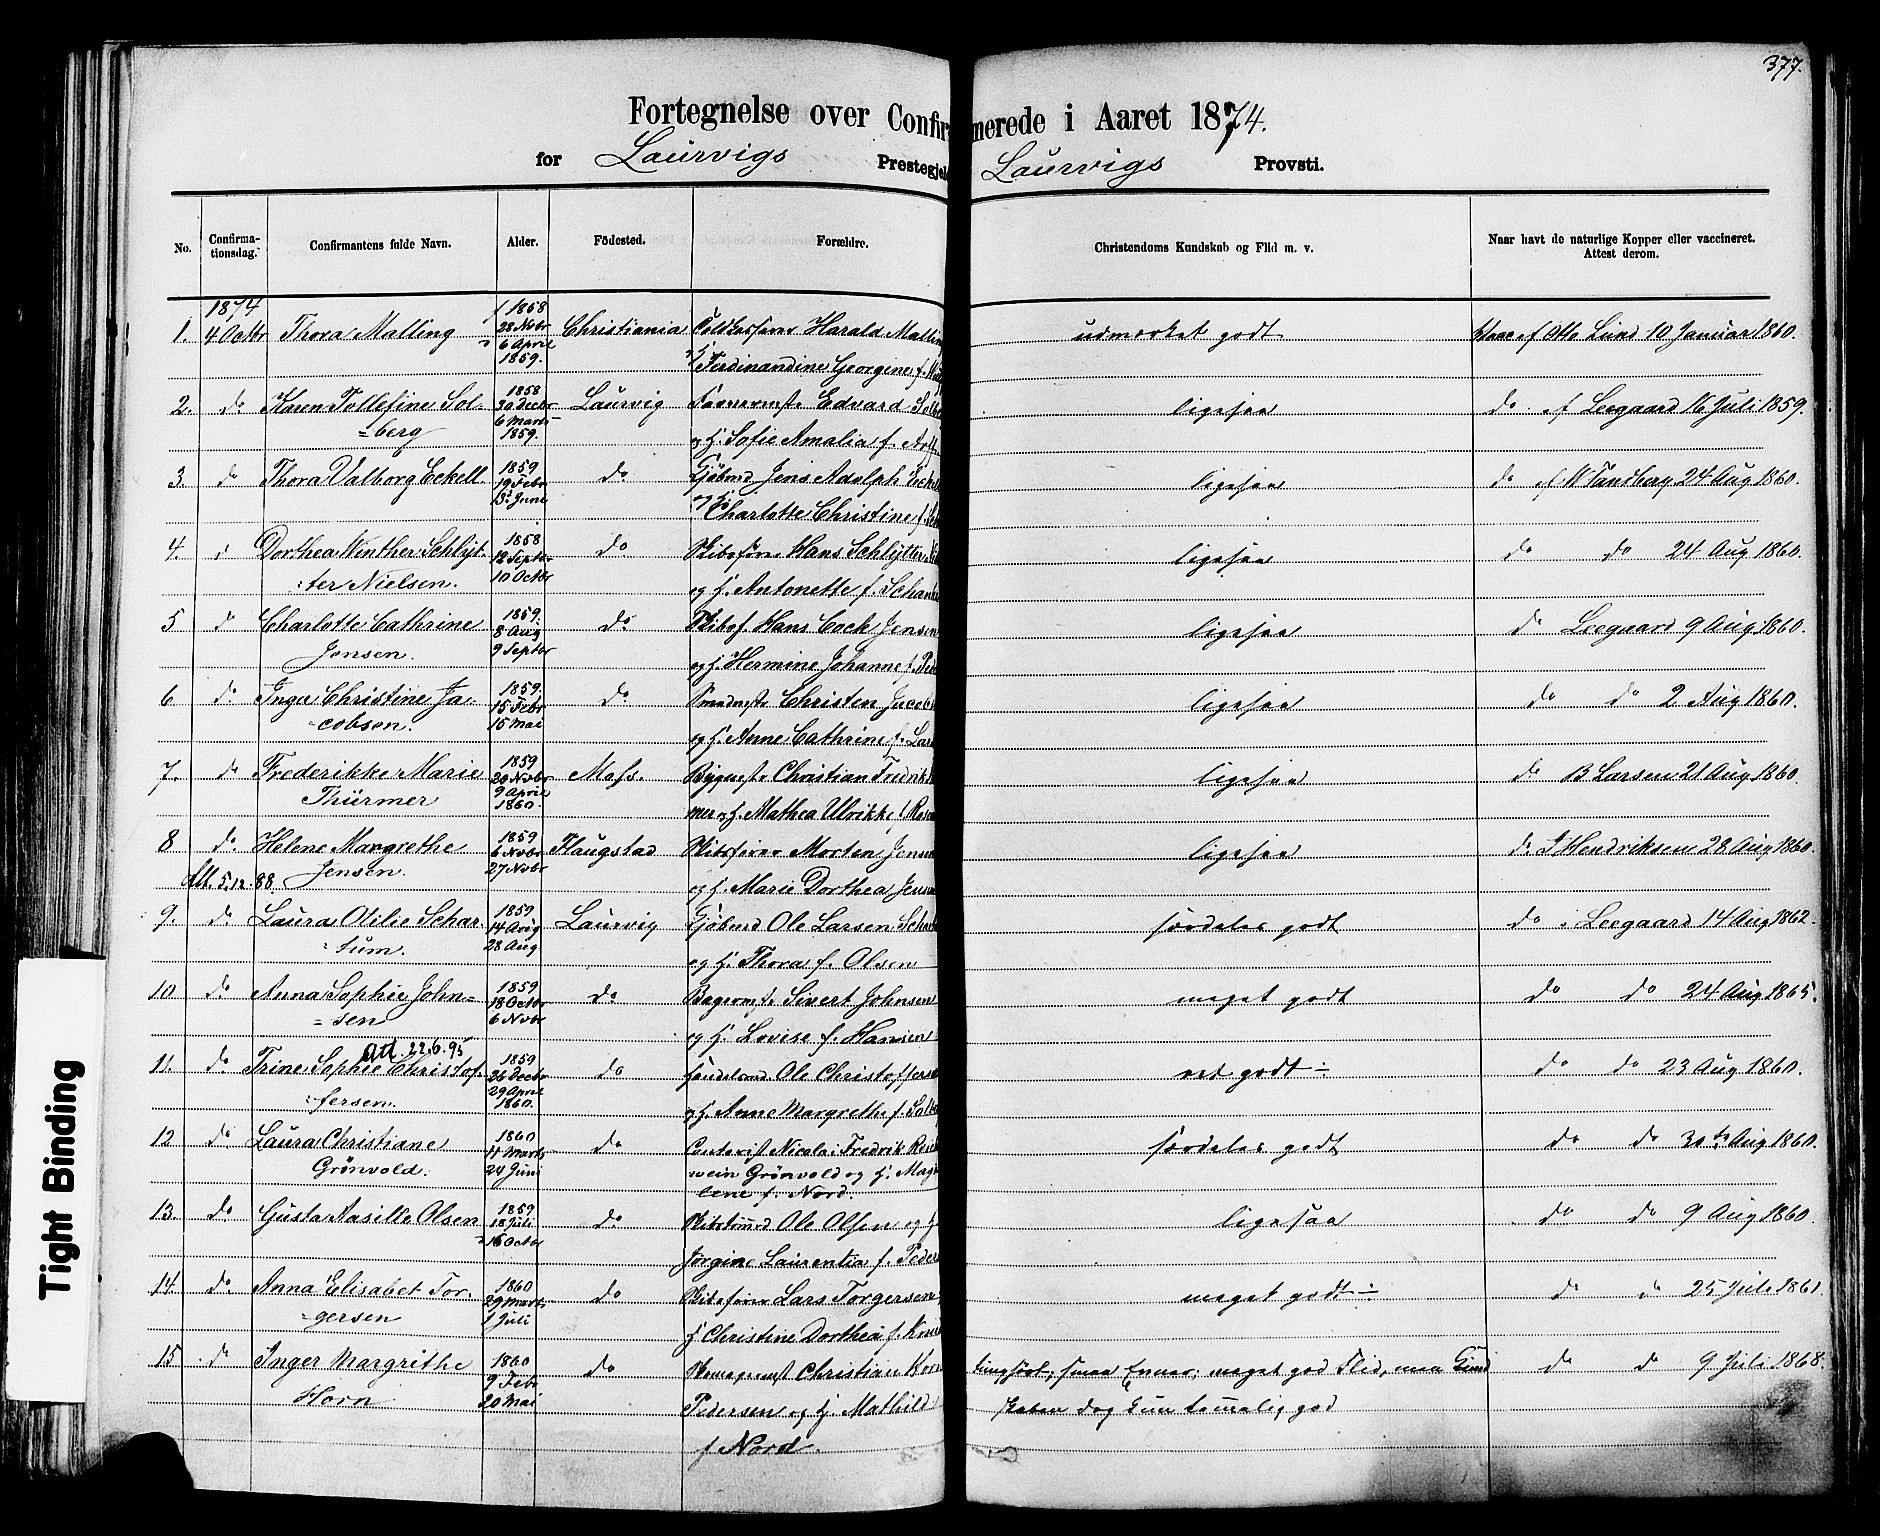 377.
Fortegnelse over Confir merede i Aaret 1874.
for Laurvigs Prestegjel Laurvigs Provsti.
No. Confirma-tionsdag. Confirmantens fulde Navn. Alder. Födested. Forældre. Christendoms Kundskab og Flid m. v. Naar havt de naturlige Kopper eller vaccineret. Attest derom.
1874 1858
1. 4 Octbr Thora Malling 28 Novbr Christiania Harald Malling udmærket godt Vacc af Otto Lund 10 Januar 1860.
6 April 1859. Ferdinandine Georgine f.
1858
2. do Karen Tollefine Sol- 30 Decbr Laurvig Farverm Edvard Solb ligesaa do af Leegaard 16 Juli 1859.
berg 6 Marts 1859. og H. Sofie Amalia f.
1859
3. do Thora Valborg Eckell 19 Febr do Gjöbmd Jens Adolph Eckell ligesaa do af M Tandberg 24 Aug 1860.
13 Juni og H. Charlotte Christine f.
1858
4. Dorthea Winther Schlyt- 12 Septbr do Skibsförer Hans Schlytter ligesaa do do 24 Aug 1860.
ter Nielsen. 10 Octbr og H. Antonette f.
1859.
5 do Charlotte Cathrine 8 Aug do Skibsf. Hans Cock Jensen ligesaa do Leegaard 9 Aug 1860.
Jensen. 9 Septbr og H. Hermine Johanne f.
1859.
6 do Inger Christine Ja- 15 Febr do Smedmstr Christen Jacob ligesaa do do 2 Aug 1860.
cobsen. 15 Mai og H. Anne Cathrine f. Lars
1859
7. do Frederikke Marie 20 Novbr Moss. Bygmestr Christian Fredrik ligesaa do B Larsen 21 Aug 1860.
Thürmer 9 April 1860. mer og H. Mathea Ulrikke f.
1859
8 do Helene Margrethe 6 Novbr Haugstad Skibsförer Morten Jensen ligesaa do J Hendriksen 28 Aug 1860.
Att. 5.12.88. Jensen. 27 Novbr og H. Marie Dorthea Jensen
1859
9. do Laura Otilie Schar- 14 Aug Laurvig Gjöbmd Ole Larsen særdeles godt do Leegaard 14 Aug 1862.
tum. 28 Aug og H. Thora f. Olsen
1859
10 do Anna Sophie John- 18 Octbr do Bagermstr Sivert Johnsen meget godt do do 24 Aug 1865.
sen 6 Novbr og H. Lovise f. Hansen
Att. 22.6.95 1859
11. do Trine Sophie Christof- 26 Decbr do Handelsmd Ole Christoffersen ret godt ÷ do do 23 Aug 1860.
fersen. 29 April 1860. og H Anne Margrethe f.
1860
12 do Laura Christiane 11 Marts do Contorist Nicolai Fredrik særdeles godt do do 30te Aug 1860.
Grönvold. 24 Juni wein Grönvold og H. Mag
lene f. Nord.
1859
13. do Gusta Aasille Olsen 18 Juli do Skibstömd Ole Olsen og H ligesaa do do 9 Aug 1860.
16 Octbr Jörgine Laurentia f. Peders
1860
14. do Anna Elisabet Tor- 29 Marts do Skibsförer Lars Torgersen, meget godt ÷ do do 25 Juli 1861.
gersen 1 Juli H Christine Dorthea f.
1860
15 do Inger Margrethe 9 Febr do Skomagermst Christian Horn tungfört, smaa Evner, meget god Flid, men Kund do do 9 Juli 1868.
Horn 20 Mai Pedersen og H Mathild skaben dog kun temmelig god
f Nord.
Tight Binding